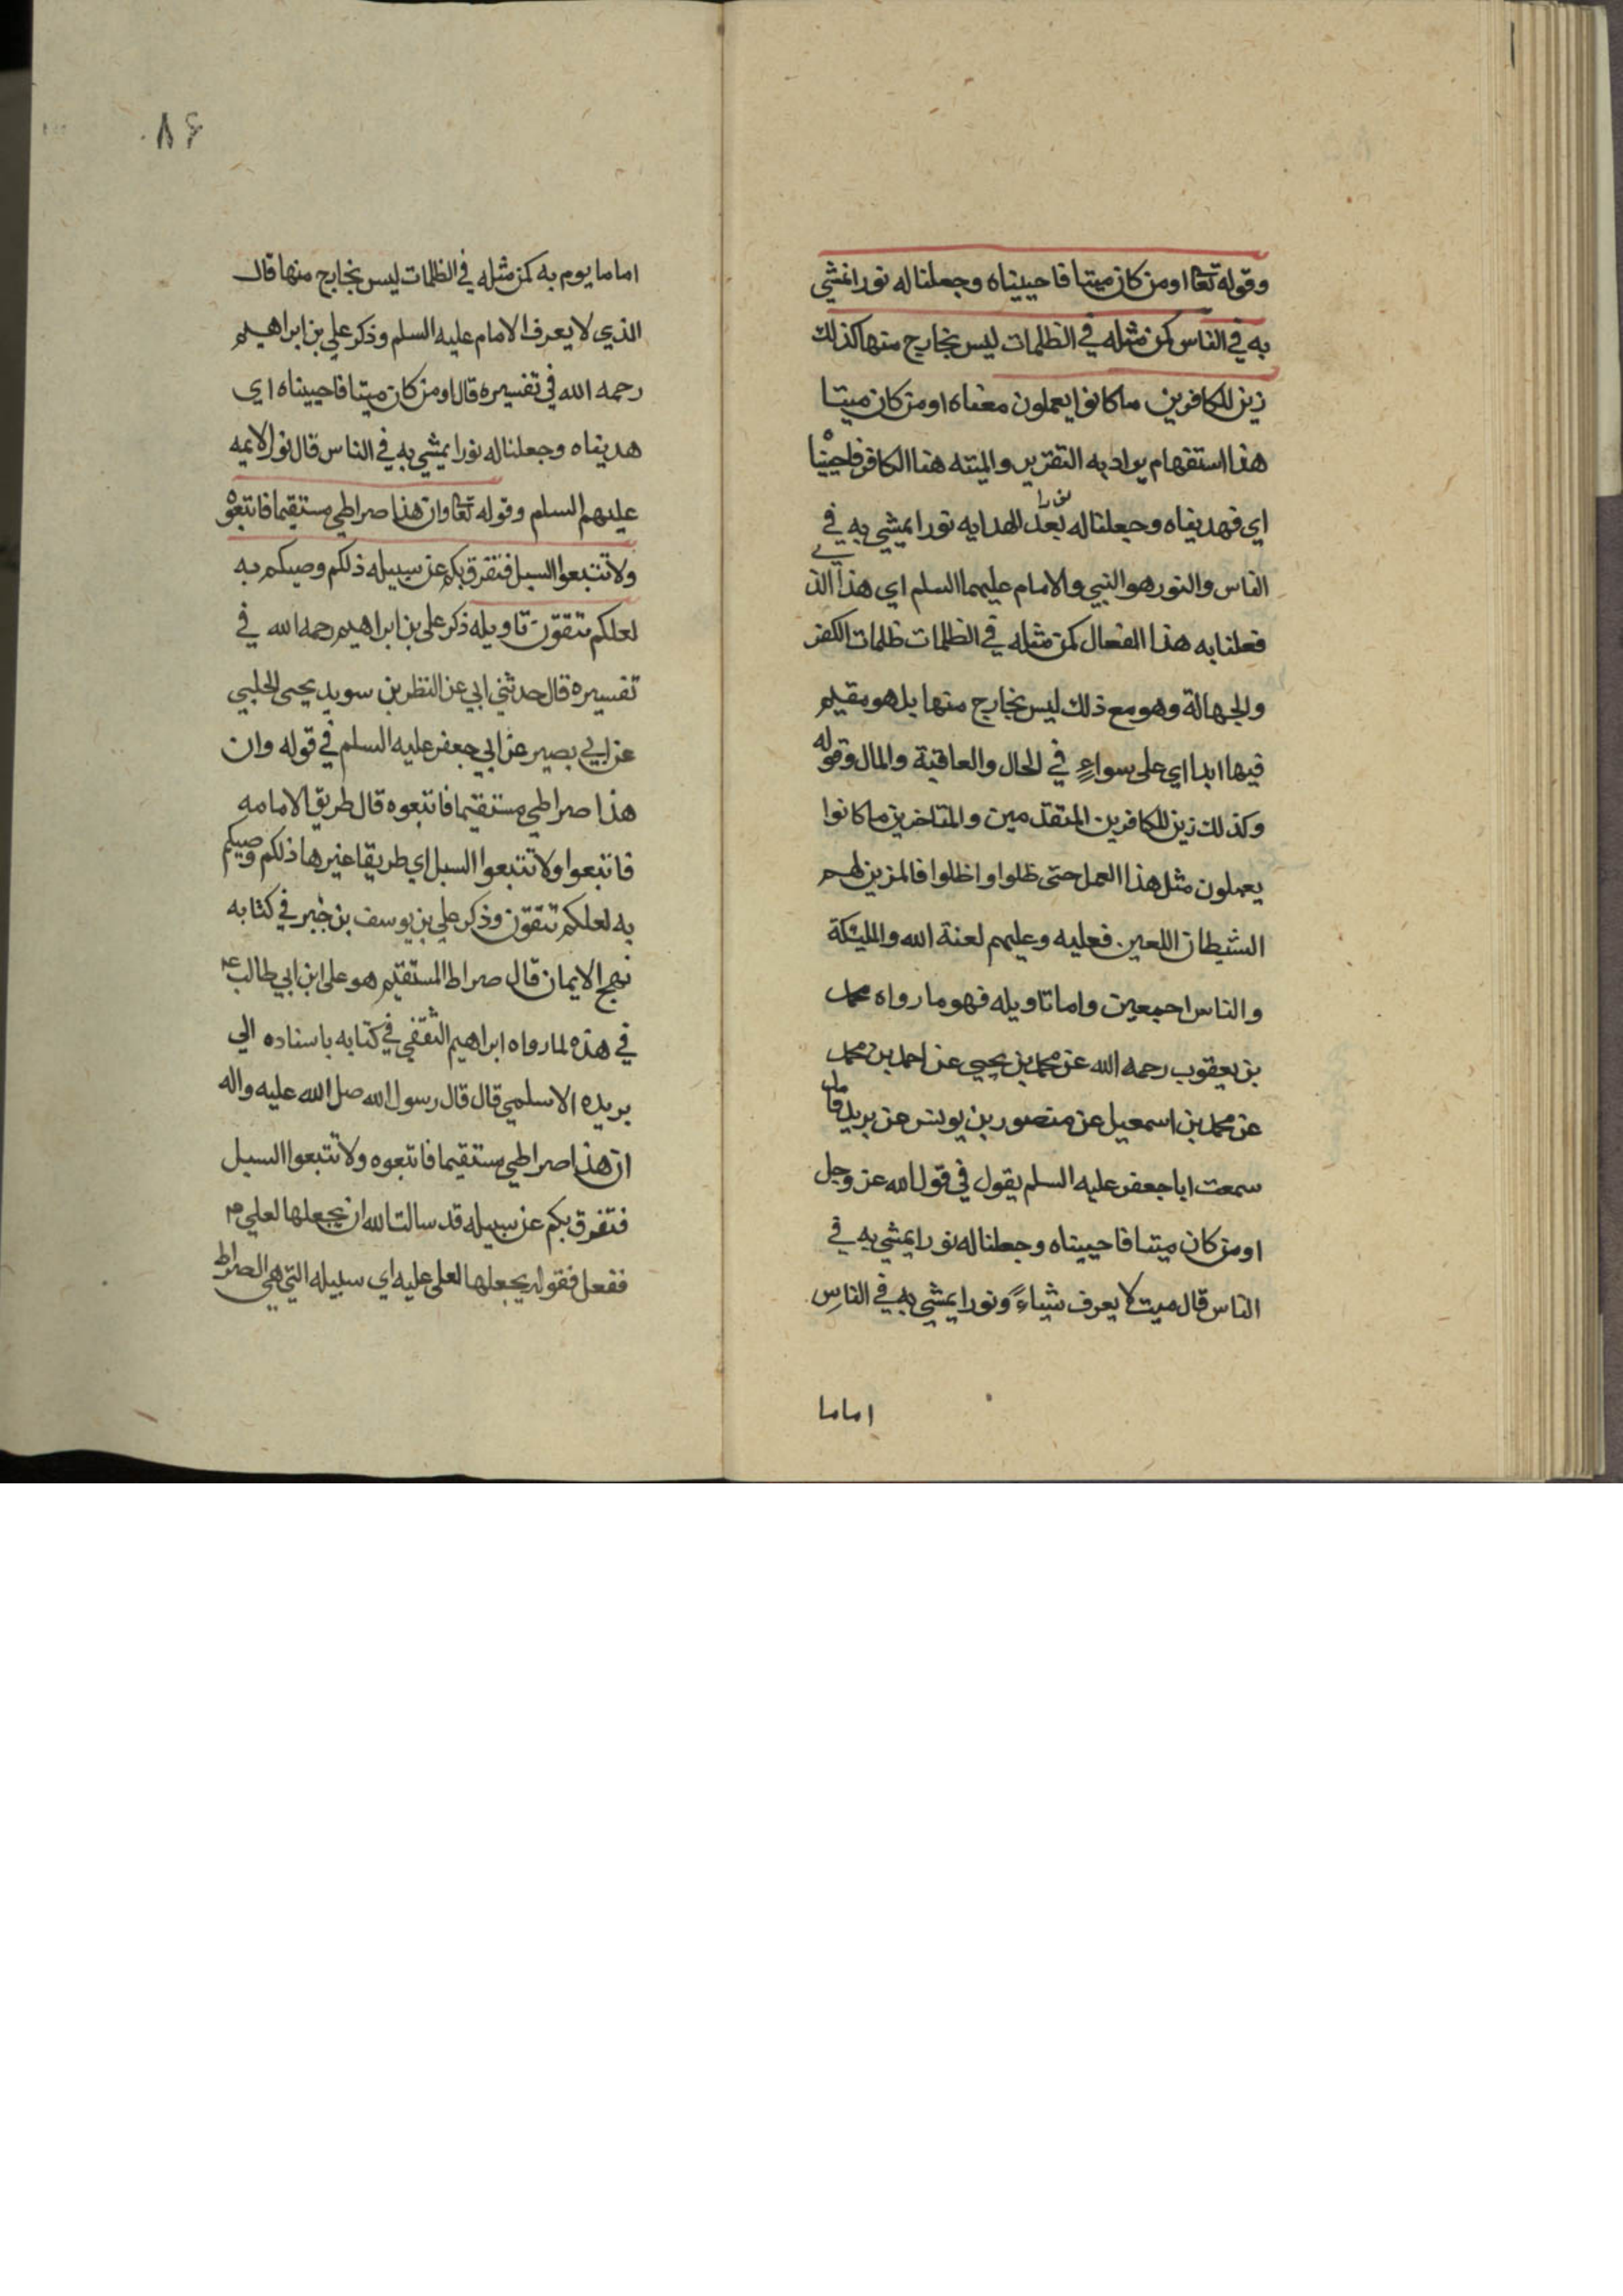 وقوله تعا اومن كان ميتا فاحييناه وجعلنا له نورا نمشي
به في الناس كمن مثله في الظلمات ليس بخارج منها كذلك
زين للكافرين ماكانوا يعملون معناه اومن كان ميتا
هذا استفهام يراد به التقرير والميته هنا الكافر فاحييناه
اي فهديناه وجعلنا له نورا بعد الهدايه نورا يمشي به في
الناس والنور هو النبي والامام عليهما السلم اي هذا الذي
فعلنا به هذا الفعال كمن مثله في الظلمات ظلمات الكفر
والجهالة وهو مع ذلك ليس بخارج منها بل هو مقيم
فيها ابدا اي على سواءٍ في الحال والعاقبة والمال وقوله
وكذلك زين للكافرين المتقدمين والمتاخرين ما كانوا
يعملون مثل هذا العمل حتى ظلوا واظلوا فالمزين لهم
الشيطان اللعين فعليه وعليهم لعنة الله والمليئكة
والناس اجمعين واما تاويله فهو ما رواه محمد
بن يعقوب رحمه الله عن محمد بن يحيي عن احمد بن محمد
عن محمد بن اسمعيل عن منصور بن يونس عن بريد قال
سمعت ابا جعفر عليه السلم يقول في قول الله عز وجل
اومن كان ميتا فاحييناه وجعلنا له نورا يمشي به في
الناس قال ميت لا يعرف شياءً ونورا يمشي به في الناس
اماما
٨٦
اماما يوم به كمن مثله في الظلمات ليس بخارج منها قال
الذي لا يعرف الامام عليه السلم وذكر علي بن ابراهيم
رحمه الله في تفسيره قال اومن كان ميتا فاحييناه اي
هديناه وجعلنا له نورا يمشي به في الناس قال نور الايمه
عليهم السلم وقوله تعا وان هذا صراطي مستقيما فاتبعوه
ولا تتبعوا السبل فتفرق بكم عن سبيله ذلكم وصيكم به
لعلكم تتقون تاويله ذكر علي بن ابراهيم رحمه الله في
تفسيره قال حدثني ابي عن النظر بن سويد يحيى الحلبي
عن ابي بصير عن ابي جعفر عليه السلم في قوله وان
هذا صراطي مستقيما فاتبعوه قال طريق الامامه
فاتبعوا ولا تتبعوا السبل اي طريقا غيرها ذلكم وصيكم
به لعلكم تتقون وذكر علي بن يوسف بن جبر في كتابه
نهج الايمان قال صراط المستقيم هو على ابن ابي طالب عم
في هذه لما رواه ابراهيم الثقفي في كتابه باسناده الي
بريده الاسلمي قال قال رسول الله صل الله عليه واله
ان هذا صراطي مستقيما فاتبعوه ولا تتبعوا السبل
فتفرق بكم عن سبيله قد سالت الله ان يجعلها لعلي
ففعل فقوله يجعلها لعلى عليه اي سبيله التي هي الصراط